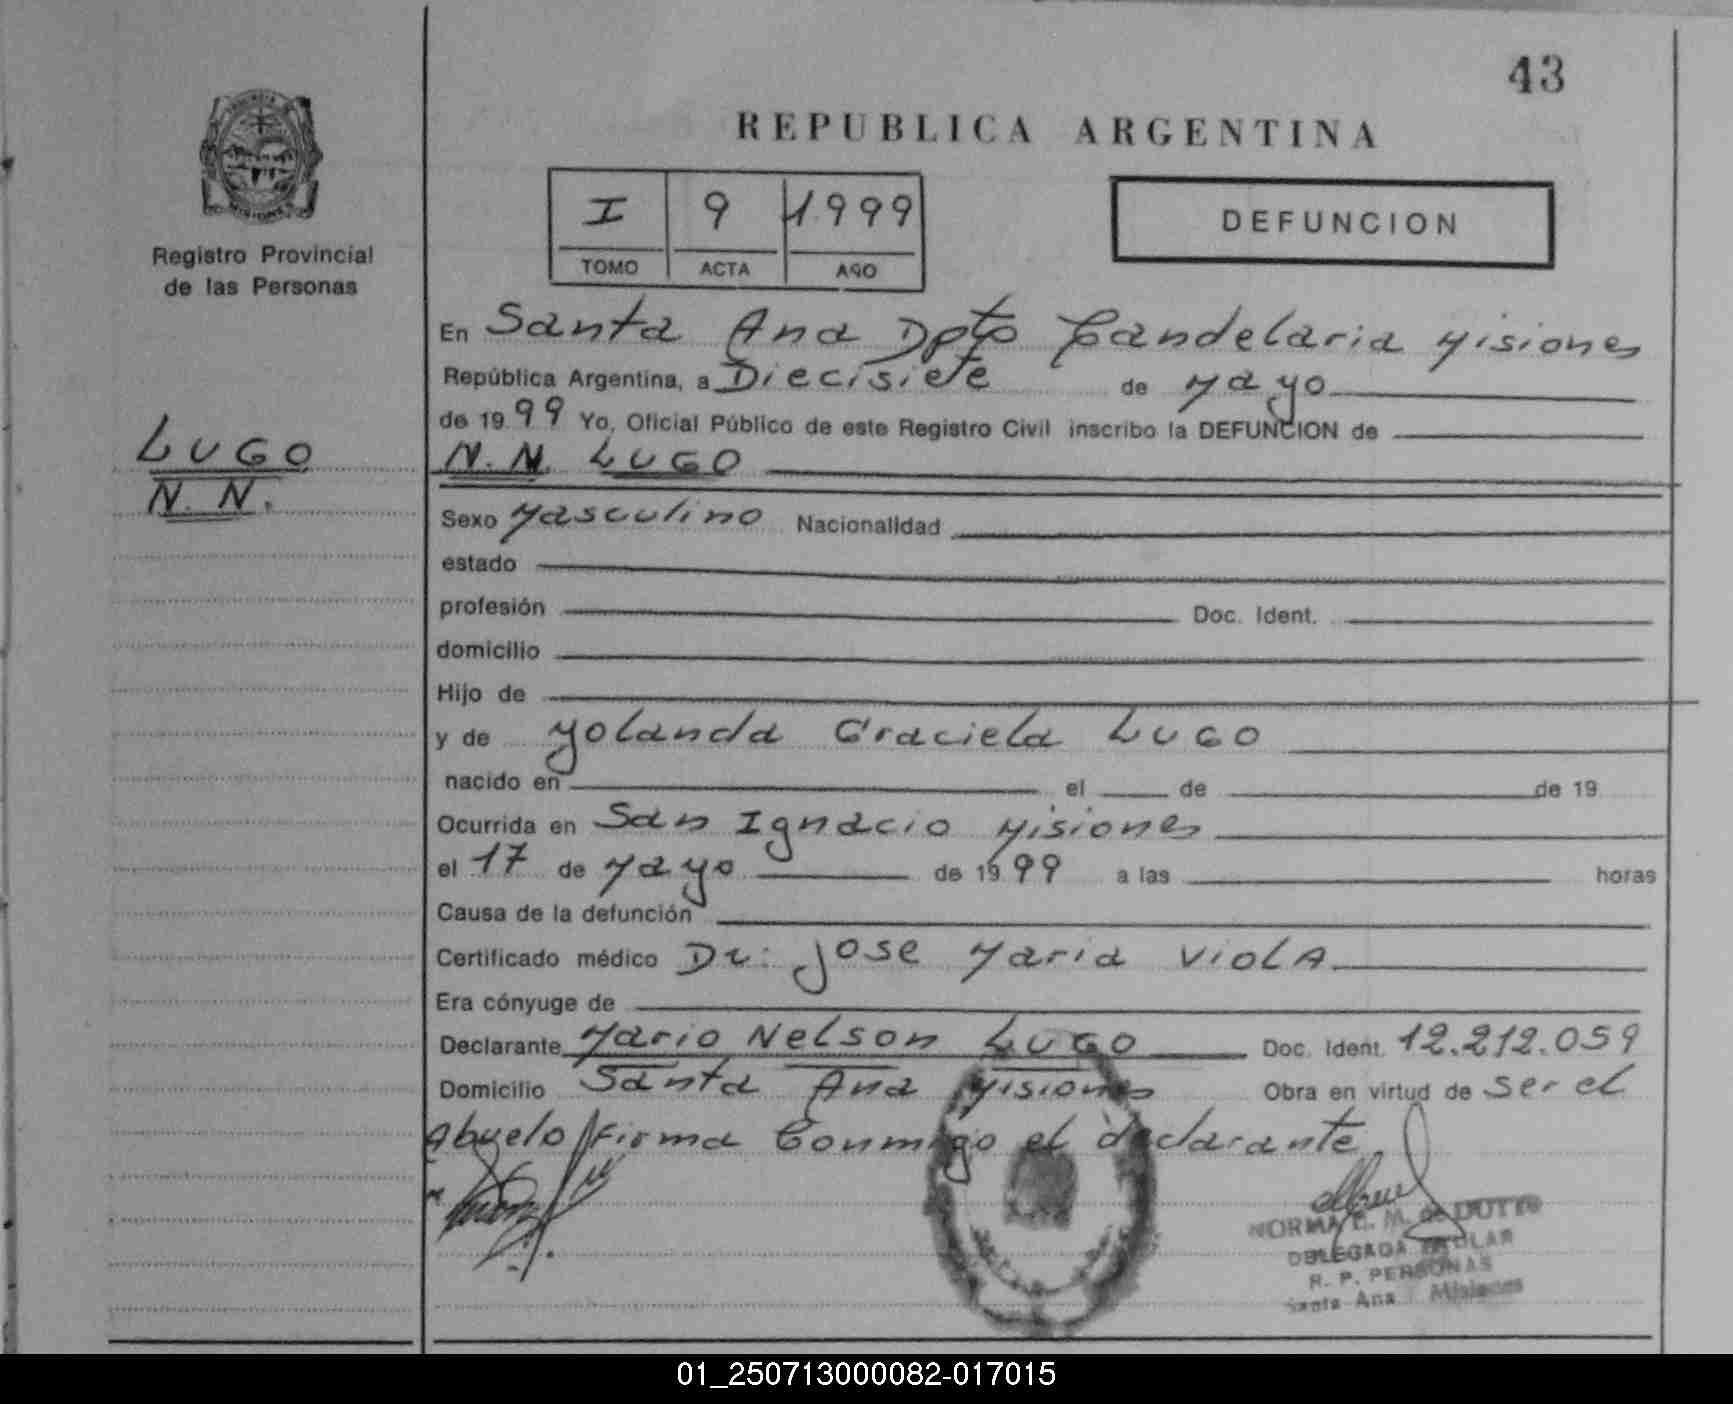 43
REPUBLICA ARGENTINA
I 9 1999
TOMO ACTA AÑO
DEFUNCION
Registro Provincial
de las Personas
LUGO
N. N.
En Santa Ana Dpto Candelaria Misiones
República Argentina, a Diecisiete de Mayo
de 1999 Yo, Oficial Público de este Registro Civil inscribo la DEFUNCION de
N. N. LUGO
Sexo Masculino Nacionalidad
estado
profesión Doc. Ident.
domicilio
Hijo de
y de Yolanda Graciela LUGO
nacido en el de de 19
Ocurrida en San Ignacio Misiones
el 17 de Mayo de 1999 a las horas
Causa de la defunción
Certificado médico Dr: Jose Maria Viola
Era cónyuge de
Declarante Mario Nelson LUGO Doc. Ident. 12.212.059
Domicilio Santa Ana Misiones Obra en virtud de ser el
Abuelo firma Conmigo el declarante
NORMA E. M. de DUTTO
DELEGADA TITULAR
R. P. PERSONAS
Santa Ana Misiones
01_250713000082-017015